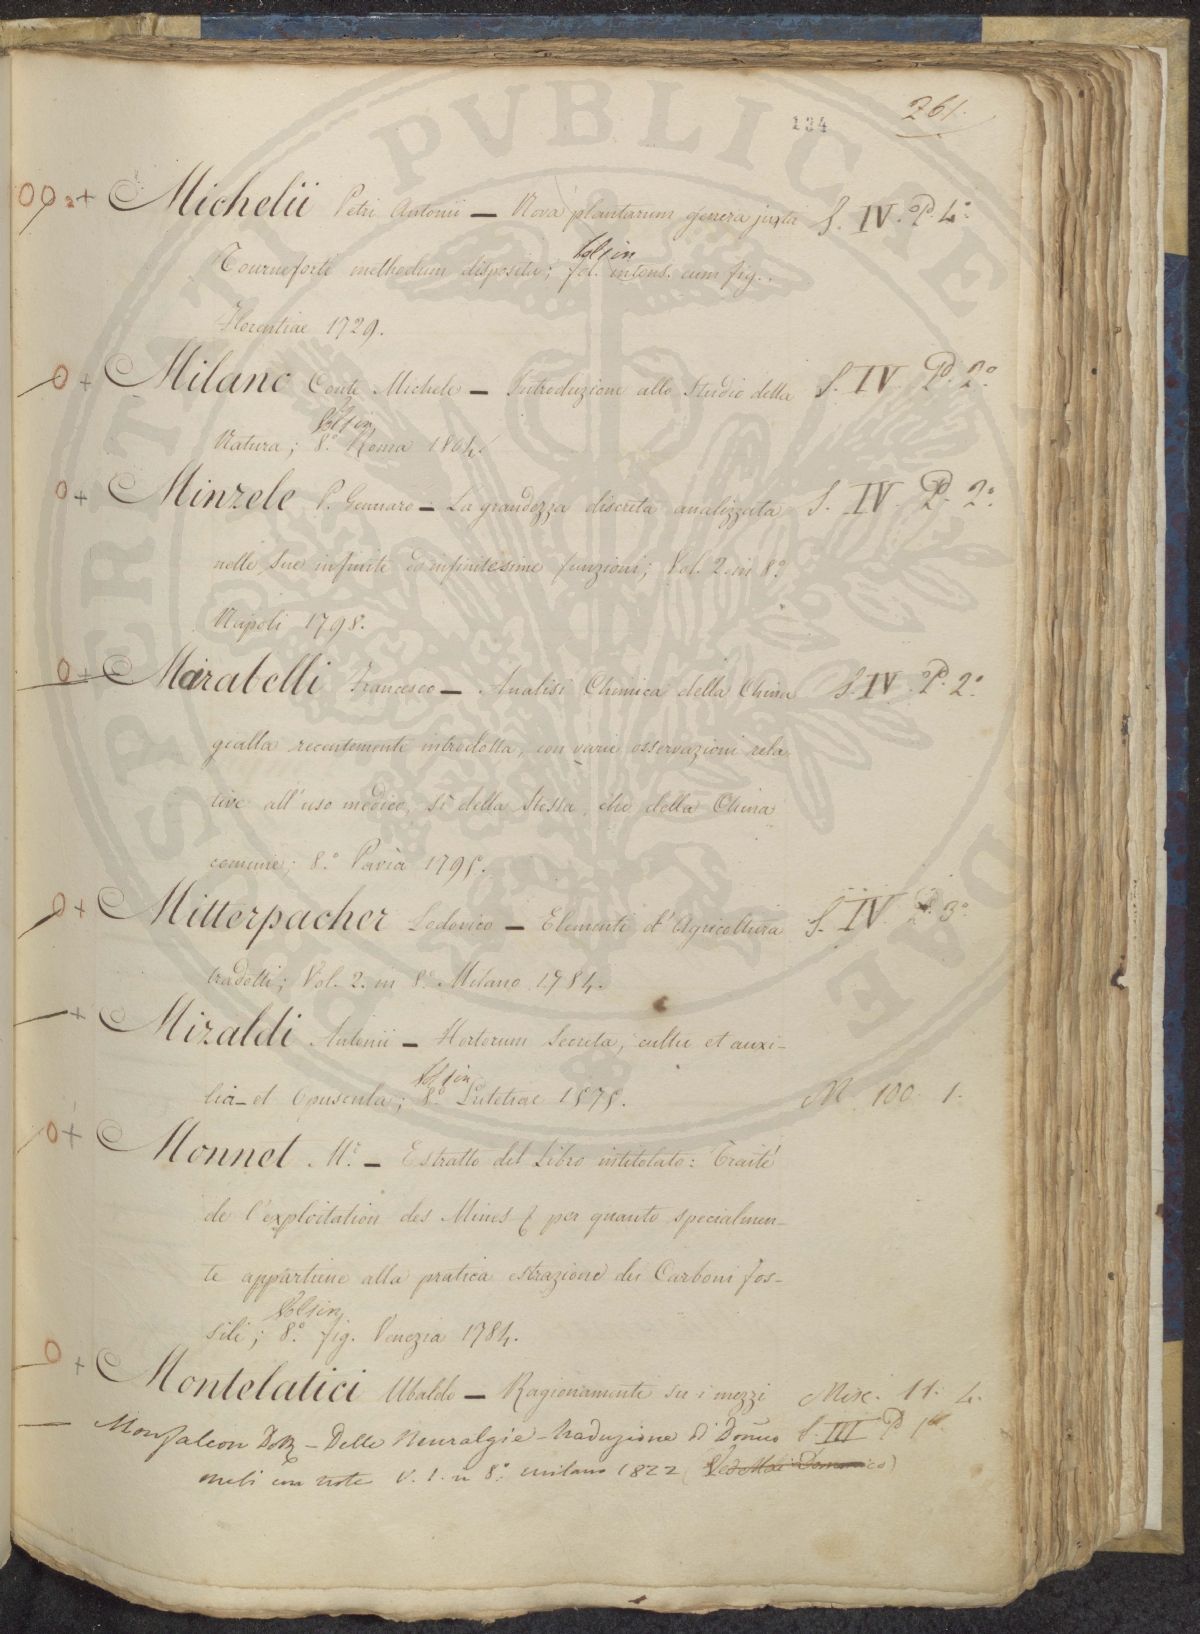 261.
134
Michelii Petri Antonii — Nova plantarum genera juxta S. IV. P. 4.º
Vol. 1 in
Tourneforti methodum disposita; fol. intons. cum fig.
Florentiae 1729.
Milano Conte Michele — Introduzione allo Studio della S. IV. P. 2º
Vol. 1 in
Natura; 8.º Roma 1804.
Minzele P. Gennaro — La grandezza discreta analizzata S. IV. P. 2º
nelle Sue infinite ed infinitesime funzioni; Vol. 2. in 8.º
Napoli 1798.
Mirabelli Francesco — Analisi Chimica della China S. IV. P. 2.º
gialla recentemente introdotta, con varie osservazioni rela
tive all'uso medico, sì della Stessa, che della China
comune; 8.º Pavia 1795.
Mitterpacher Lodovico — Elementi d'Agricoltura S. IV. P. 3º
tradotti; Vol. 2. in 8.º Milano 1784.
Mizaldi Antonii — Hortorum Secreta, cultu et auxi-
Vol. 1 in
lia et Opuscula; 8.º Lutetiae 1575. M. 100. 1.
Monnet M.r — Estratto del Libro intitolato: Traité
de l'exploitation des Mines per quanto specialmen-
te appartiene alla pratica estrazione dei Carboni fos-
Vol. 1 in
sili; 8.º fig. Venezia 1784.
Montelatici Ubaldo — Ragionamento Su i mezzi Misc. 11. 4.
Monfalcon Dott. — Delle Neuralgie — traduzione di Domco S. III P 1ª
Meli con note V. 1. in 8.º Milano 1822 (Ved Meli Domenico)
PVBLICAE PROSPERITATI